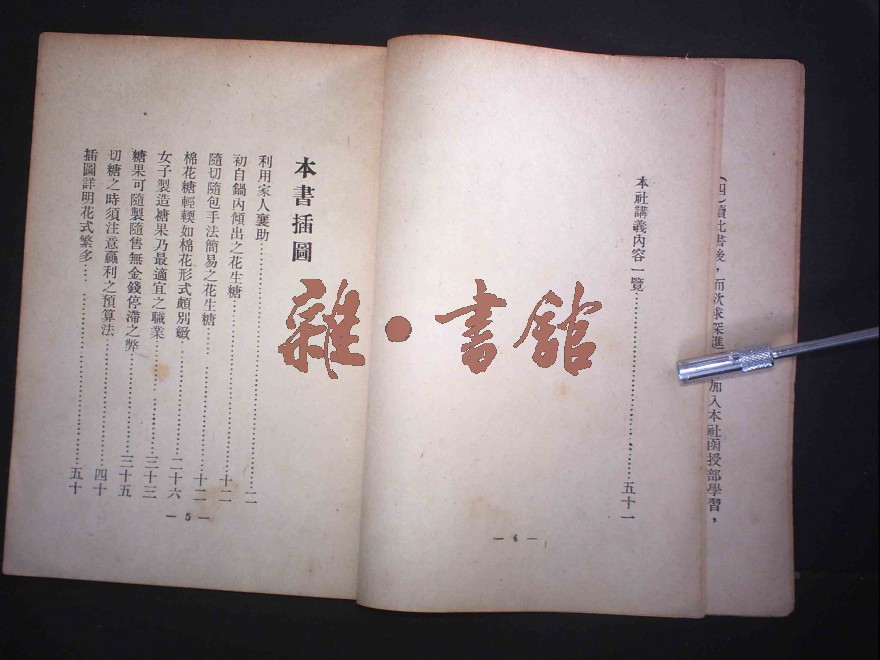 (四)讀此書後，而欲求深進
加入本社函授部學習，
本社講義內容一覽……五十一
— 4 —
本書插圖
利用家人襄助……二
初自鍋內傾出之花生糖……十二
隨切隨包手法簡易之花生糖……十二
棉花糖輕輭如棉花形式頗別緻……二十六
女子製造糖果乃最適宜之職業……三十三
糖果可隨製隨售無金錢停滯之弊……三十五
切糖之時須注意贏利之預算法……四十
插圖詳明花式繁多……五十
— 5 —
雜·書館